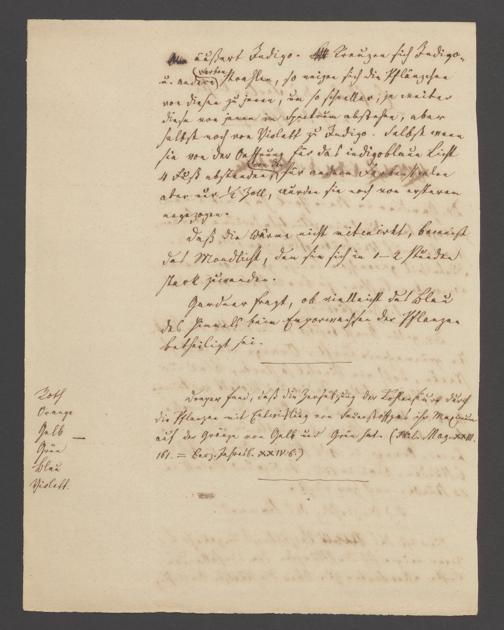 äußert Indigo. Kreuzen sich Indigo-
u. andere Farben Strahlen, so neigen sich die Pflänzchen
von diesen zu jenem, um so schneller, je weiter
diese von jenem im Spectrum abstehen, aber
selbst noch von Violett zu Indigo. Selbst wenn
sie von der Oeffnung für das indigoblaue Licht
4 Fuß abstanden, für andere Farbenstrahlen
aber nur ½ Zoll, wurden sie noch von ersterem
angezogen.
Daß die Wärme nicht mitwirkt, beweist
das Mondlicht, dem sie sich in 1–2 Stunden
stark zuwenden.
Gardner fragt, ob vielleicht das Blau
des Himmels beim Emporwachsen der Pflanzen
betheiligt sei.
Draper fand, daß die Zersetzung der Kohlensäure durch
die Pflanzen mit Entwicklung von Sauerstoffgas ihr Maximum
auf der Gränze von Gelb und Grün hat. (Phil. Mag. XXIII.
161. = Berz. Jahresb. XXIV.)
Roth
Orange
Gelb
Grün
Blau
Violett.